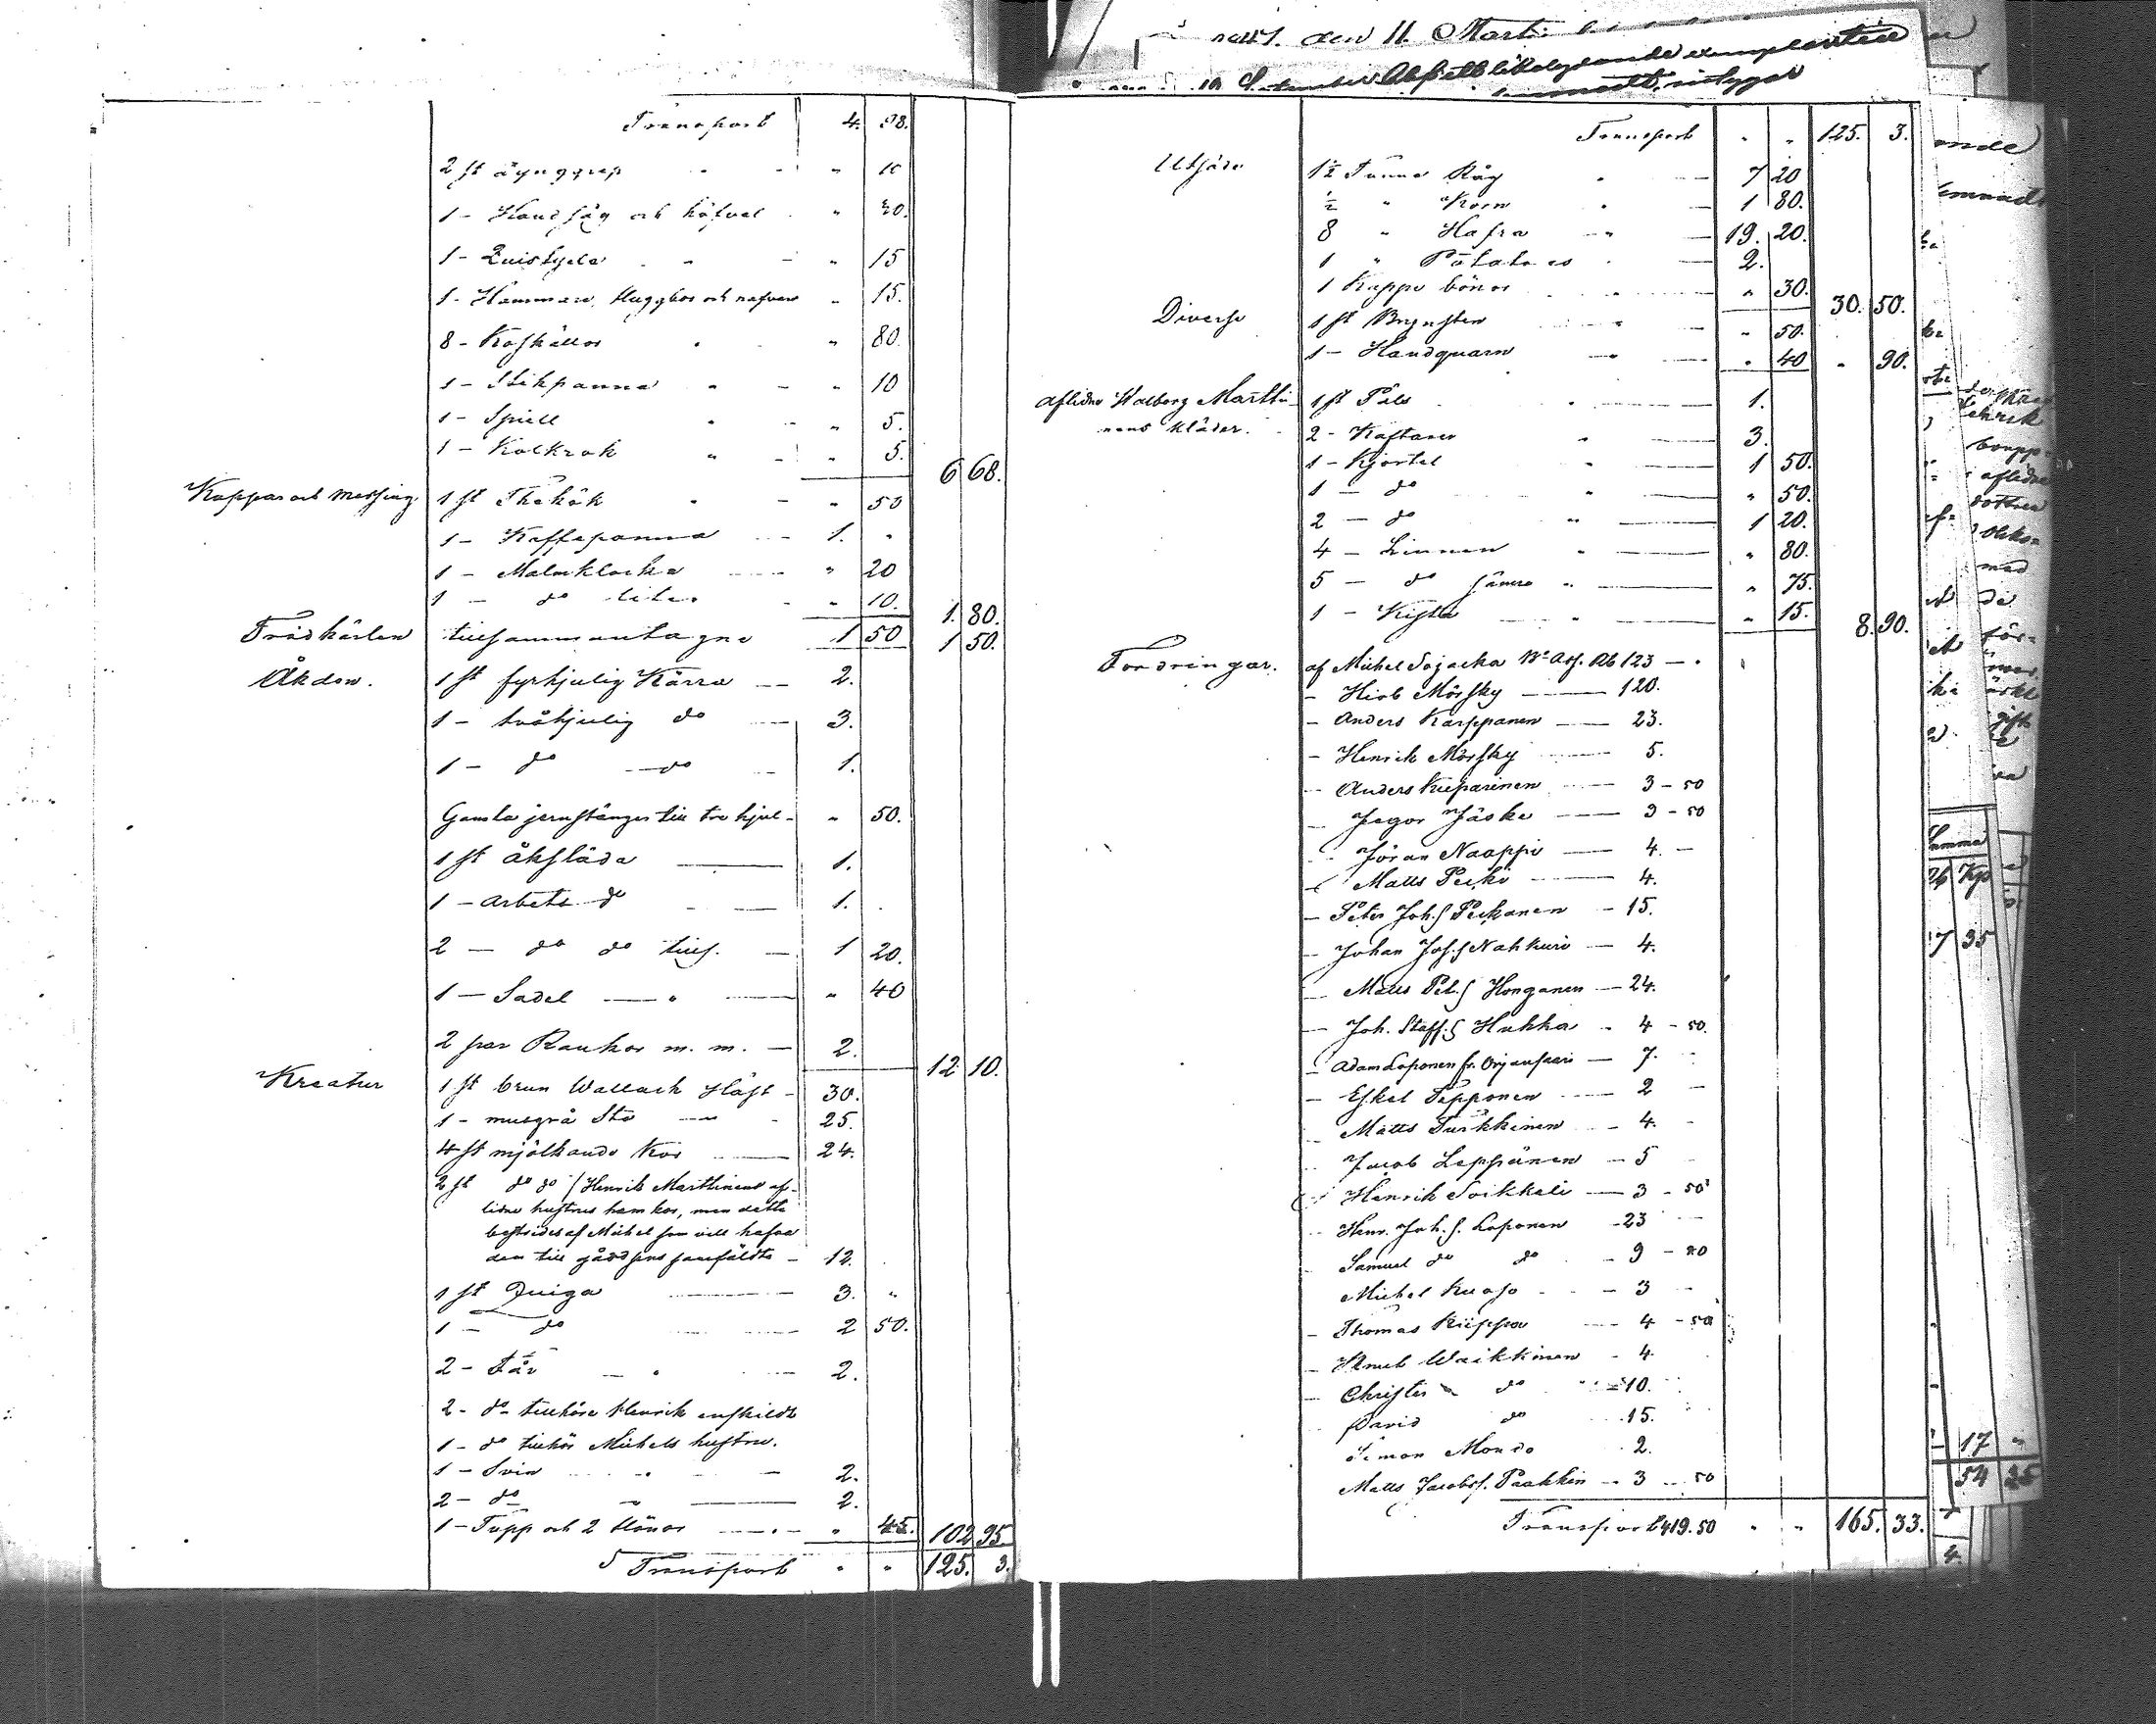 Transport 4. 98.
2 st dynggrep " 10
1 - Handsåg och höfvel " 20.
1 - Quistyxa " 15
1 - Hammare, Huggbor och nafvare " 15.
8 - Koskällor " 80.
1 - Stekpanna " 10
1 - Spiell " 5.
1 - Kolkrok " 5. 6 68.
Koppar och Messing. 1 st Thekök " 50
1 - Kaffepanna 1. "
1 - Malmklocka " 20
1 - do liten " 10. 1. 80.
Trädkärlen tillsammantagne 1 50 1 50.
Åkdon. 1 st fyrhjulig Kärra 2.
1 - tvåhjulig do 3.
1 - do do 1.
Gamla jernstänger till tre hjul - " 50.
1 st åksläda 1.
1 - arbets do 1.
2 - do do tills. 1 20.
1 - Sadel " 40
2 par Rankor m. m. 2. 12 10.
Kreatur 1 st brun Wallack Häst 30.
1 - musgrå Sto 25.
4 st mjölkande Kor 24.
2 st do do / Henrik Marttinens af-
lidne hustrus hemkor, men detta
bestrides af Michel som vill hafva
dem till gårdens samfäldte - 12.
1 st Quiga 3. "
1 - do 2 50.
2 - Får 2.
2 - do tillhöra Henrik enskildt
1 - do tillhör Michels hustru.
1 - Svin 2.
2 - do 2.
1 - Tupp och 2 Hönor " 45. 102 95.
Transport " " 125. 3.
nells. den 11. Marti
September Ab ett likalydande exemplar till
intygar
Transport " " 125. 3.
Utsäde 1½ Tunna Råg 7 20
½ " Korn 1 80.
8 " Hafra 19. 20.
1 " Potatoes 2.
1 Kappe bönor " 30. 30. 50.
Diverse 1 st Brynsten " 50.
1 - Handquarn " 40 " 90.
aflidne Walborg Martti- 1 st Päls 1.
nens kläder. 2 - Kaftaner 3.
1 - Kjortel 1 50.
1 - do " 50.
2 - do 1 20.
4 - Linnen " 80.
5 - do sämre " 75.
1 - Kista " 15. 8. 90.
Fordringar. af Michel Sojacka 123 -
- Hiob Mörsky 120.
- Anders Karppanen 23.
- Henrik Mörsky 5.
- Anders Kieparinen 3 - 50
- Jegor Jäske 3 - 50
- Jöran Naappi 4. -
- Matts Peiko 4.
- Peter Joh.s Peikanen - 15.
- Johan Joh.s Nahkuri - 4.
- Matts Pet.s Honganen - 24.
- Joh. Staff.s Hukka - 4 - 50.
- Adam Loponen fr. Orjansaari - 7.
- Eskel Tepponen 2 -
- Matts Turkkinen - 4. -
- Jacob Leppänen - 5 -
- Henrik Soikkeli - 3 - 50
- Henr. Joh.s. Loponen - 23 -
Samuel do do - 9 - 20
Michel Kuosa - 3 -
- Thomas Kieppa - 4 - 50
- Knut Waikkinen - 4.
- Christer do - 10.
- David do 15.
Simon Mondo 2.
Matts Jacobss. Paakkin - 3 - 50
Transport 419. 50 " " 165. 33.
Summa
7 35
17 "
54 25